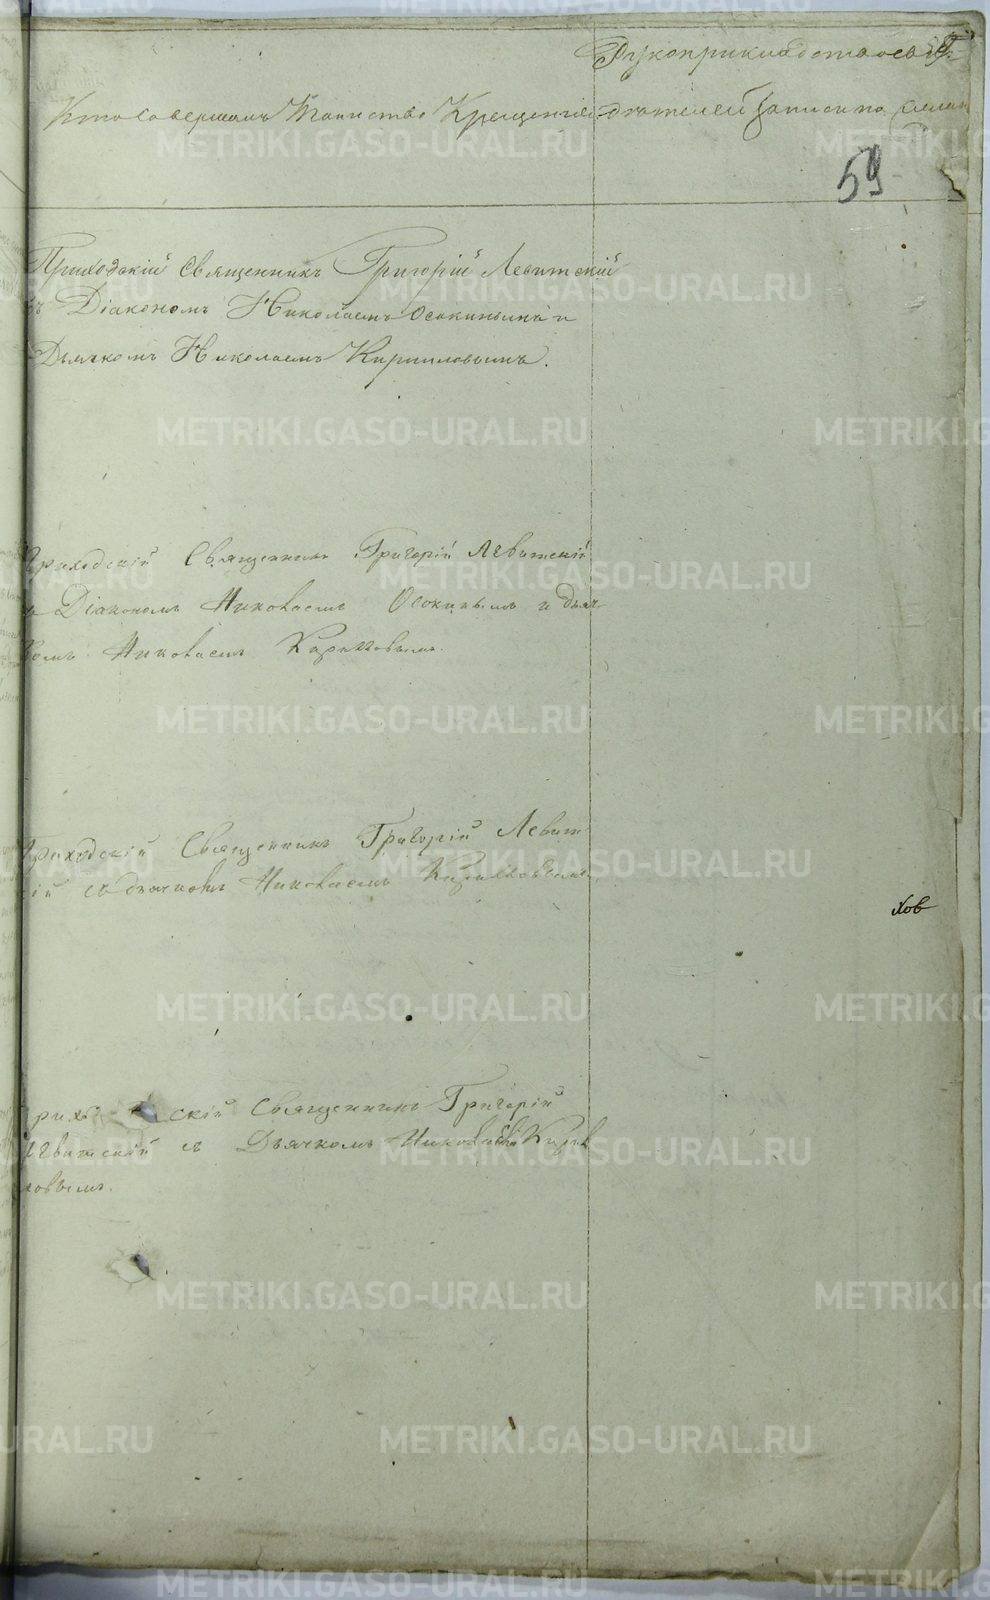 Рукоприкладство свид
Кто совершалъ Таинство Крещенія
дѣтелей записи по желан
59
Приходскій Священникъ Григорій Левитскій
съ Діакономъ Николаемъ Осокинымъ и
Дьячкомъ Николаемъ Кирилловымъ.
Приходскій Священникъ Григорій Левитскій
съ Діакономъ Николаемъ Осокинымъ и Дьяч
комъ Николаемъ Кирилловымъ.
Приходскій Священникъ Григорій Левит
скій съ Дьячкомъ Николаемъ Кирилловымъ
хов
Прихо скій Священникъ Григорій
Левитскій съ Дьячкомъ Николаемъ Кирил
ловымъ.
METRIKI.GASO-URAL.RU